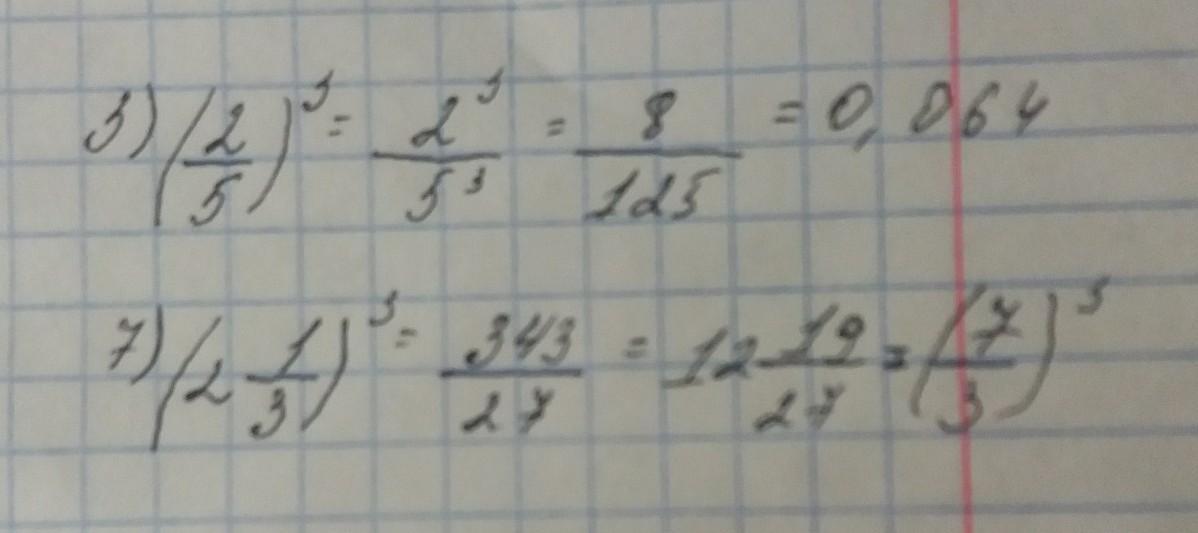 3) (2/5)³ = 2³/5³ = 8/125 = 0,064
7) (2 1/3)³ = 343/27 = 12 19/27 = (7/3)³